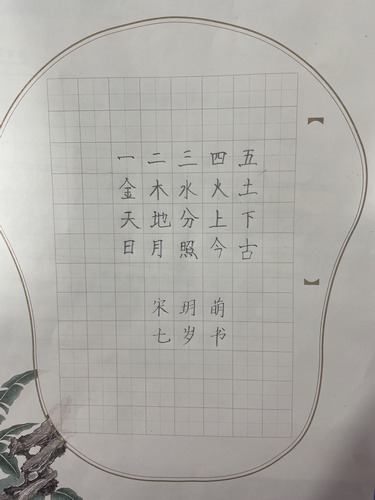 一二三四五
金木水火土
天地分上下
日月照今古
宋玥萌
七岁书